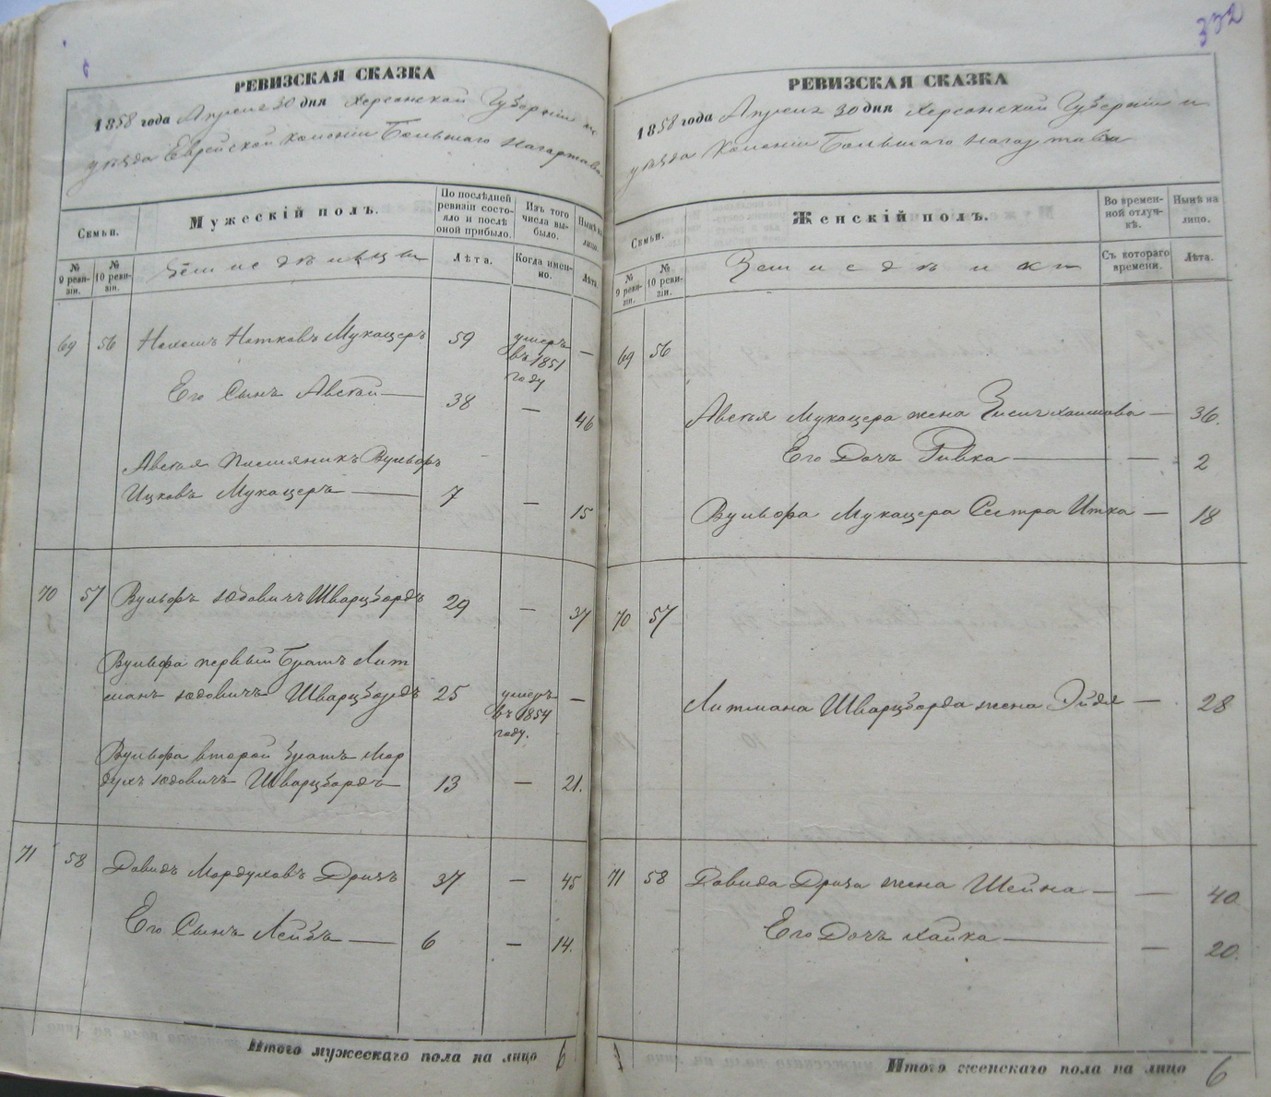 332
РЕВИЗСКАЯ СКАЗКА
1858 года Апреля 30 дня Херсонской Губерніи и
уѣзда Еврейской Колоніи Большаго Нагартава
Семьи.
Мужескій полъ.
По послѣдней ревизіи состояло и послѣ оной прибыло.
Изъ того числа выбыло.
Нынѣ на лицо.
№ 9 ревизіи.
№ 10 ревизіи.
Земледѣльцы
Лѣта.
Когда именно.
Лѣта.
69 56 Мукацеръ 59 умеръ въ 1851 году —
Его Сынъ Авсѣй — 38 — 46
Авсѣя Племяникъ Вульфъ
Ицковъ Мукацеръ — 7 — 15
70 57 Вульфъ Юдовичъ Шварцбордъ 29 — 37
Вульфа первый братъ Лит
манъ Юдовичъ Шварцбордъ 25 умеръ въ 1854 году. —
Вульфа второй братъ Мор
духъ Юдовичъ Шварцбордъ 13 — 21.
71 58 Давидъ Мордуховъ Дризъ 37 — 45
Его Сынъ Лейбъ — 6 — 14.
Итого мужескаго пола на лицо 6
РЕВИЗСКАЯ СКАЗКА
1858 года Апреля 30 дня Херсонской Губерніи и
уѣзда Колоніи Большаго Нагартава
Семьи.
Женскій полъ.
Во временной отлучкѣ.
Нынѣ на лицо.
№ 9 ревизіи.
№ 10 ревизіи.
Съ котораго времени.
Лѣта.
69 56
Авсѣя Мукацера жена — 36.
Его Дочь Ривка — — 2
Вульфа Мукацера Сестра Итка — 18
70 57
Литмана Шварцборда жена Эйдя — 28
71 58 Давида Дриза жена Шейна — — 40
Его Дочь Хайка — — 20.
Итого женскаго пола на лицо 6